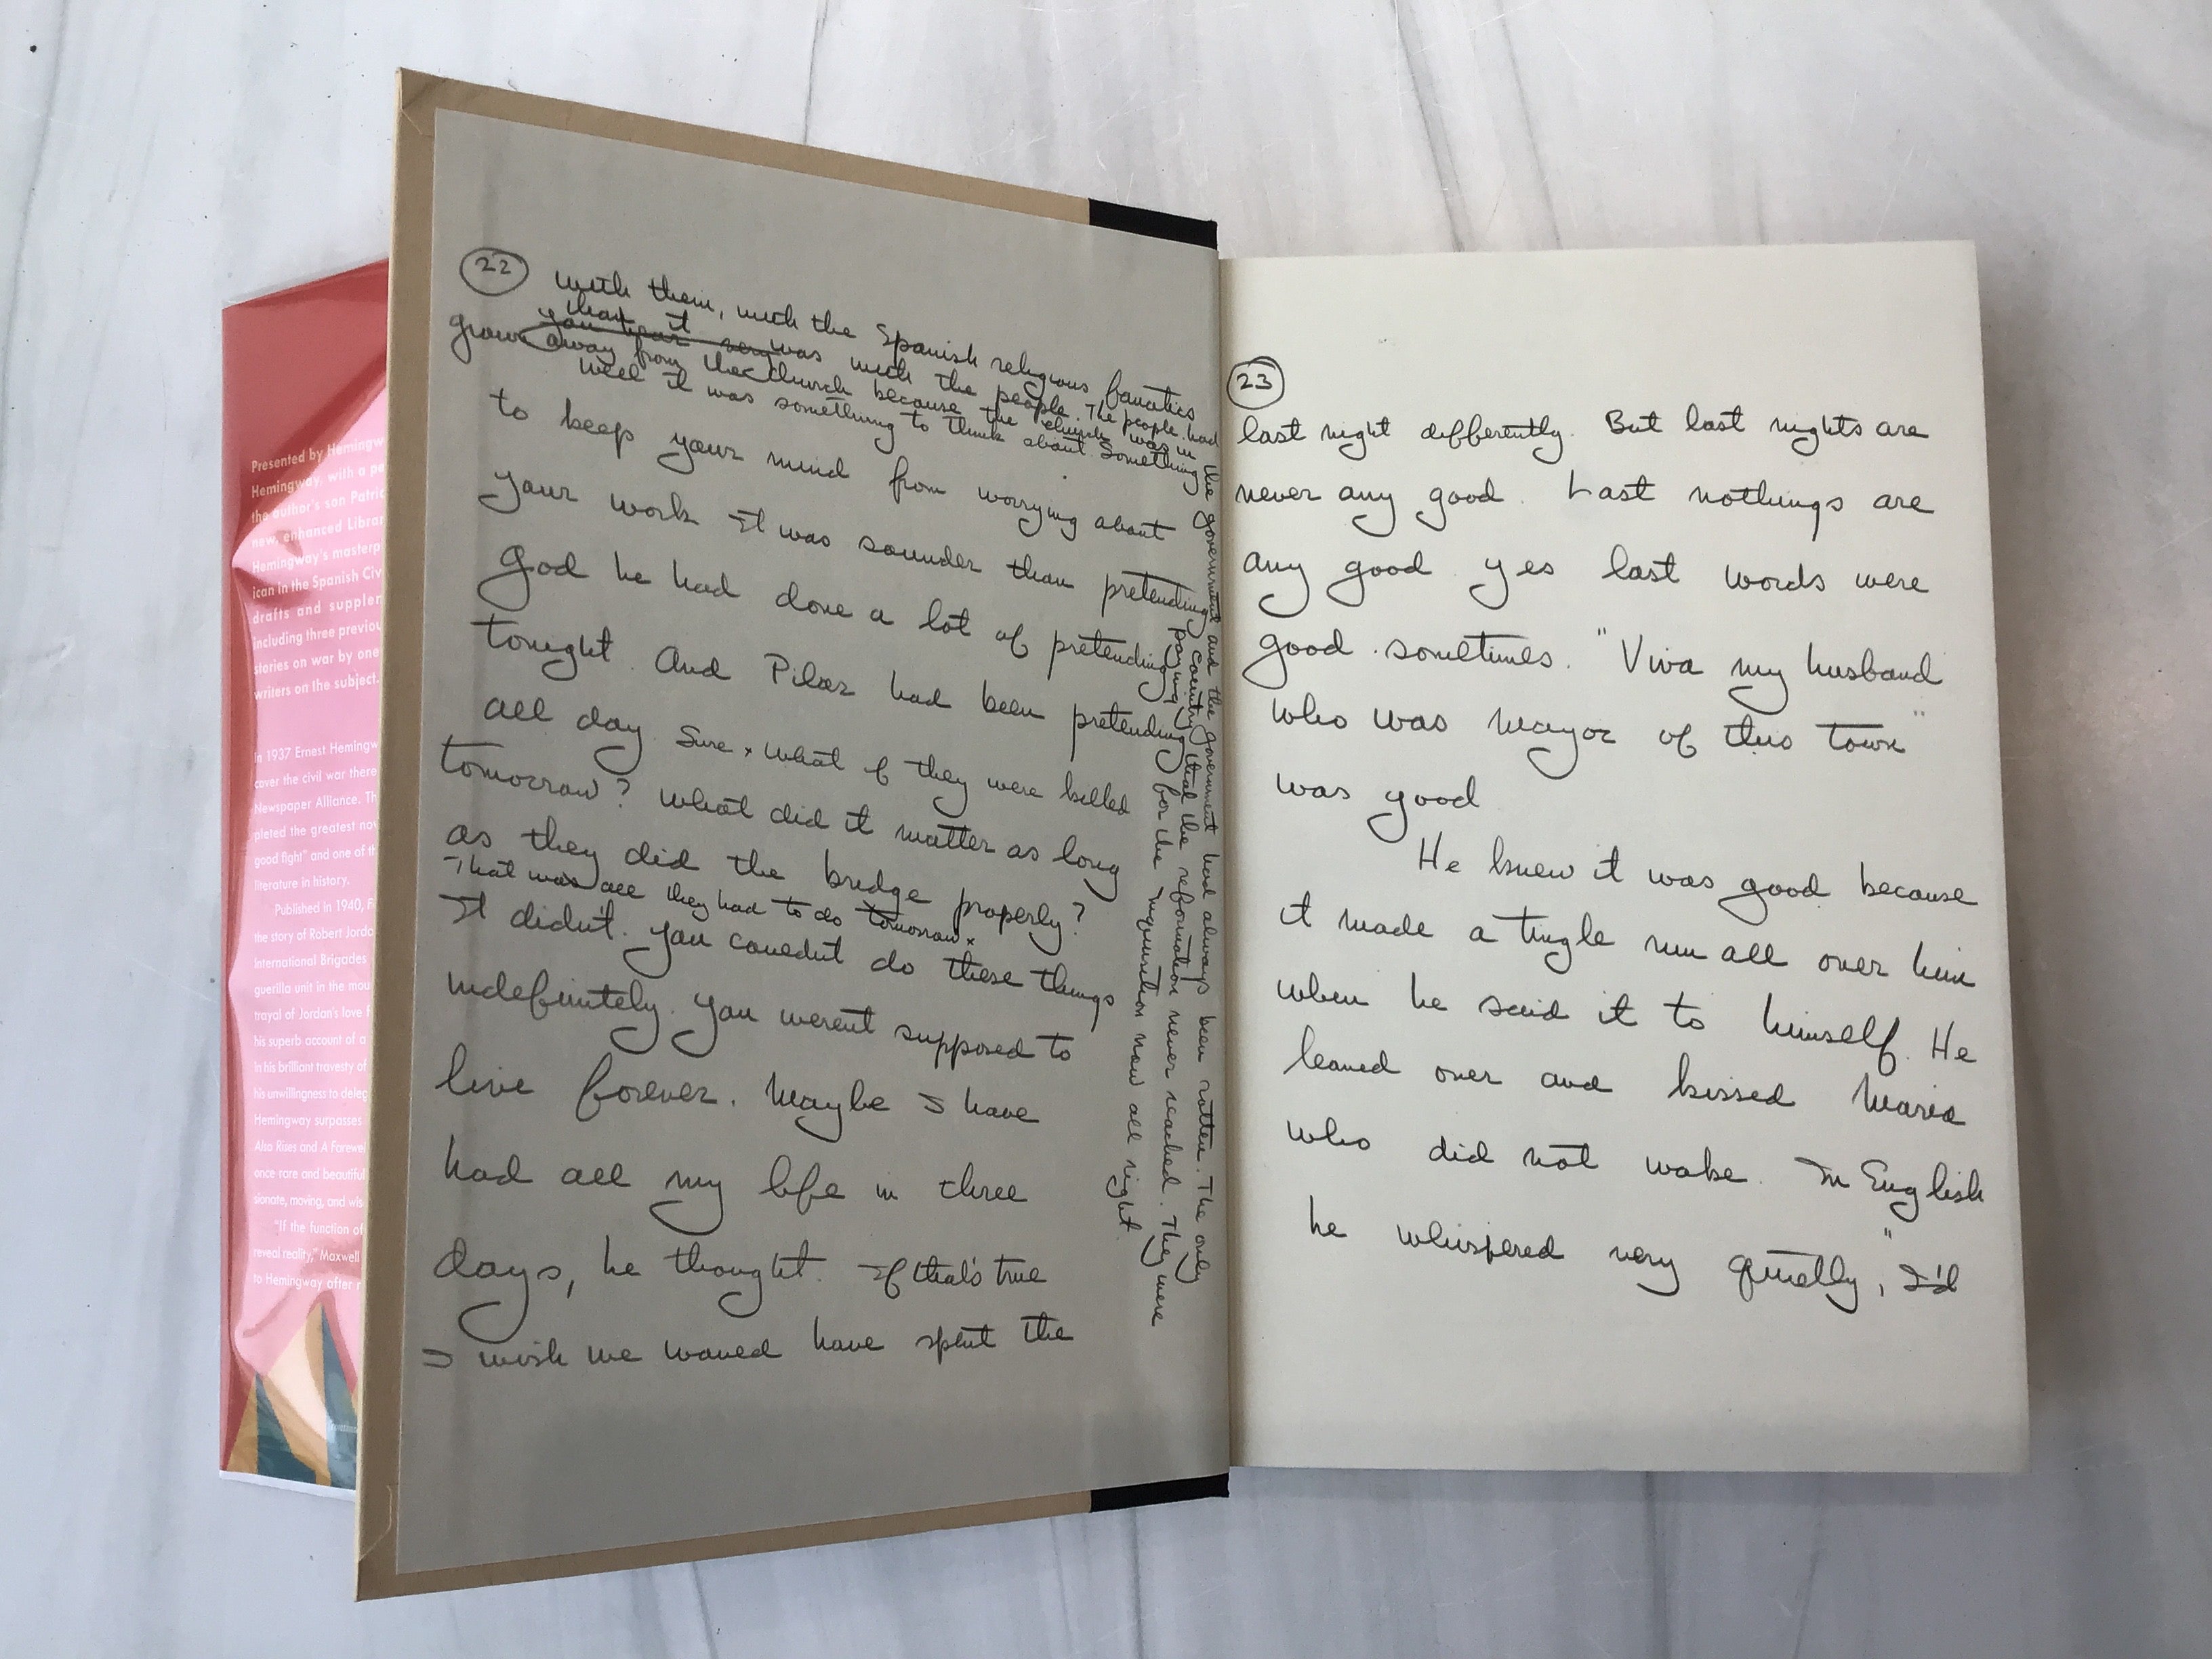 Presented by Hemingw
Hemingway, with a pe
the author's son Patric
new, enhanced Librar
Hemingway's masterp
ican in the Spanish Civ
drafts and supplem
including three previou
stories on war by one
writers on the subject.
In 1937 Ernest Hemingw
cover the civil war there
Newspaper Alliance. Th
pleted the greatest nov
good fight" and one of th
literature in history.
Published in 1940, F
the story of Robert Jorda
International Brigades
guerilla unit in the mou
trayal of Jordan's love f
his superb account of a
in his brilliant travesty of
his unwillingness to deleg
Hemingway surpasses
Also Rises and A Farewel
once rare and beautiful
sionate, moving, and wis
"If the function of
reveal reality," Maxwell
to Hemingway after r
22
with them, with the Spanish religious fanatics
than it was with the people. The people had
grown away from the church because the church was in
the government and the government had always been rotten. The only
country that the reformation never reached. They were
paying for the inquisition now all right
Well it was something to think about. Something
to keep your mind from worrying about
your work It was sounder than pretending
God he had done a lot of pretending
tonight. And Pilar had been pretending
all day. Sure. What if they were killed
tomorrow? What did it matter as long
as they did the bridge properly?
That was all they had to do tomorrow.
It didn't. You couldnt do these things
indefinitely. You werent supposed to
live forever. Maybe I have
had all my life in three
days, he thought. If that's true
I wish we would have spent the
23
last night differently. But last nights are
never any good. Last nothings are
any good yes last words were
good sometimes. "Viva my husband
who was Mayor of this town"
was good
He knew it was good because
it made a tingle run all over him
when he said it to himself. He
leaned over and kissed Maria
who did not wake. In English
he whispered very quietly, "I'd